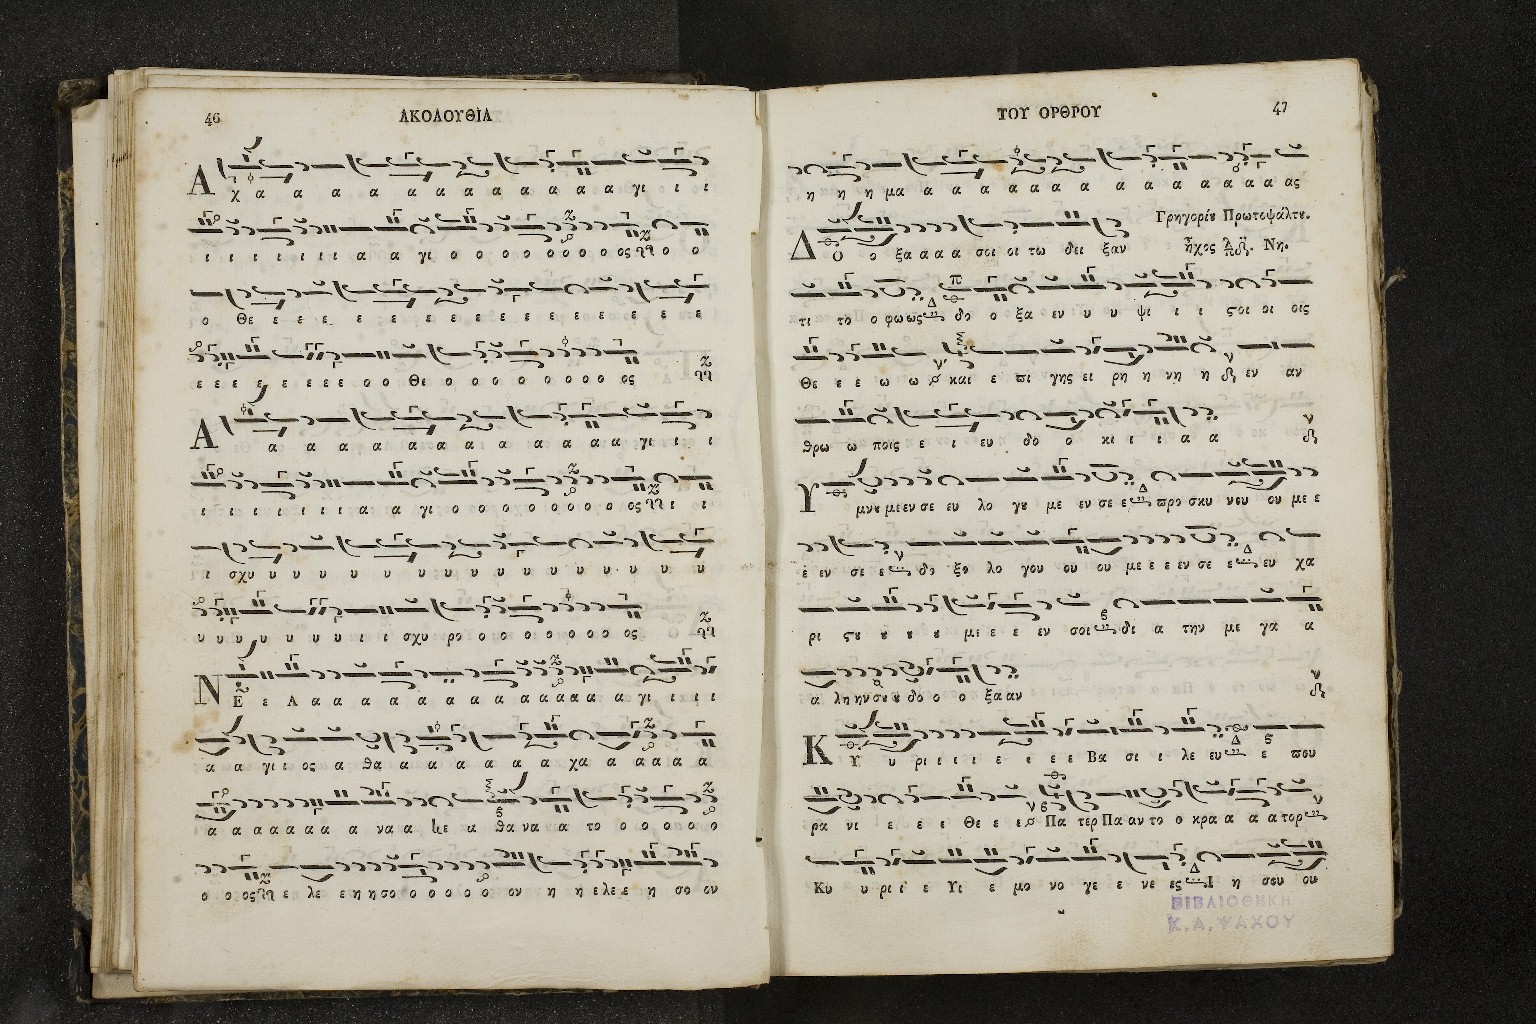 46
ΑΚΟΛΟΥΘΙΑ
Α χ α α α α α α α α α α α γι ι ι
ι ι ι ι ι ι ι α α γι ο ο ο ο ο ο ο ο ος ο ο
ο Θε ε ε ε ε ε ε ε ε ε ε ε ε ε ε ε
ε ε ε ε ε ε ε ε ο ο Θε ο ο ο ο ο ο ο ο ο ος
Α α α α α α α α α α α α α γι ι ι
ι ι ι ι ι ι ι α α γι ο ο ο ο ο ο ο ο ο ος ι ι
ι σχυ υ υ υ υ υ υ υ υ υ υ υ υ υ υ
υ υ υ υ υ υ υ ι ι σχυ ρο ο ο ο ο ο ο ο ο ος
Ν Ε ε Α α α α α α α α α α α α α α α α γι ι ι ι
α α γι ι ος α θα α α α α α α χα α α α α α
α α α α α α α α να α Νε α θα να να α το ο ο ο ο ο
ο ο ος ε λε ε η η σο ο ο ο ο ο ον η η ε λε ε η σο ον
ΤΟΥ ΟΡΘΡΟΥ
47
η η η μα α α α α α α α α α α α α α ας
Γρηγορίου Πρωτοψάλτου.
Δ Ο ο ξα α α α σοι οι τω δει ξαν ἦχος Νη.
τι το ο φω ως δο ο ξα εν υ υ ψι ι ι ςοι οι οις
Θε ε ε ω ω και ε πι γης ει ρη η νη η εν αν
θρω ω ποις ε ι ευ δο ο κι ι ι α α
Υ μνου με εν σε ευ λο γου με εν σε ε προ σκυ νου ου με ε
ε εν σε ε δο ξο λο γου ου ου με ε ε εν σε ε ευ χα
ρι ςου ου ου ου με ε ε εν σοι δι α την με γα α
α λη ην σου ου δο ο ο ξα αν
Κ Υ υ ρι ι ι ε ι ε ε Βα σι ι λε ευ ε που
ρα νι ε ε ε Θε ε ε Πα τερ Πα αν το ο κρα α α α τορ
Κυ υ ρι ι ε Υι ε μο νο γε ε νε ες Ι η σου ου
ΒΙΒΛΙΟΘΗΚΗ
Κ.Α.ΨΑΧΟΥ